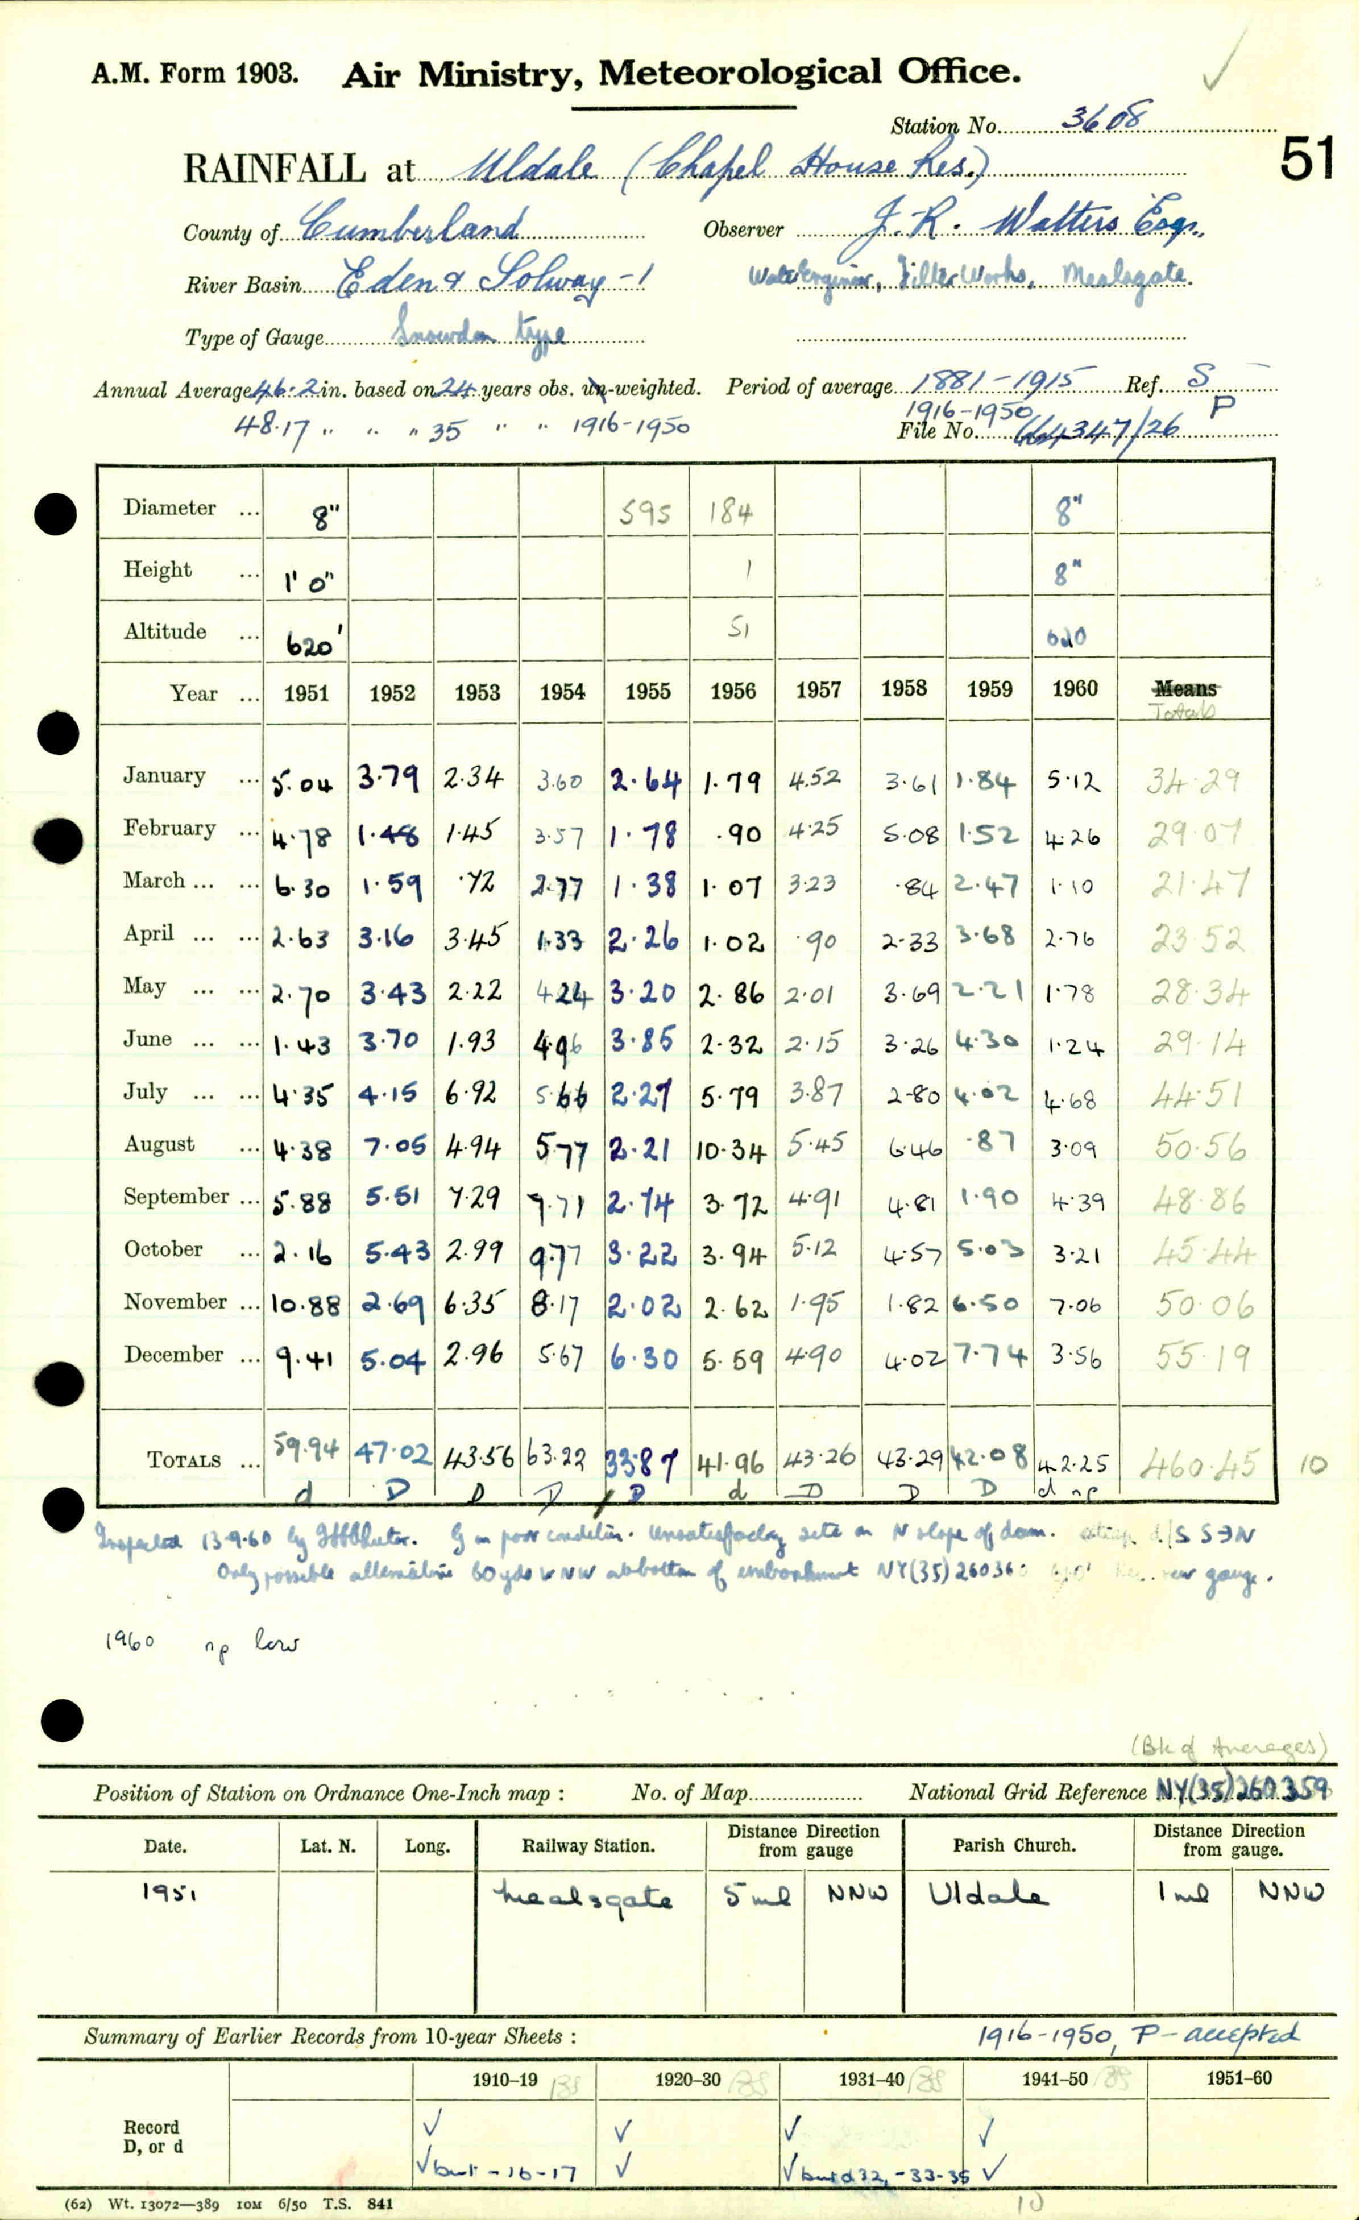 A.M. Form 1903. Air Ministry, Meteorological Office.
Station No. 3608
51
RAINFALL at Uldale (Chapel House Res.)
County of Cumberland Observer J. R. Walters Esq.,
River Basin Eden & Solway - 1 Water Engineer, Filter Works, Mealsgate.
Type of Gauge Snowdon type
Annual Average 46.2 in. based on 24 years obs. un-weighted. Period of average 1881-1915 Ref. S
48.17 " " " 35 " " 1916-1950 1916-1950 P
File No. 664347/26
Diameter ... 8" 595 184 8"
Height ... 1' 0" 1 8"
Altitude ... 620' 51 620
Year ... 1951 1952 1953 1954 1955 1956 1957 1958 1959 1960 Means
Totals
January ... 5.04 3.79 2.34 3.60 2.64 1.79 4.52 3.61 1.84 5.12 34.29
February ... 4.78 1.48 1.45 3.57 1.78 .90 4.25 5.08 1.52 4.26 29.07
March ... ... 6.30 1.59 .72 2.77 1.38 1.07 3.23 .84 2.47 1.10 21.47
April ... ... 2.63 3.16 3.45 1.33 2.26 1.02 .90 2.33 3.68 2.76 23.52
May ... ... 2.70 3.43 2.22 4.24 3.20 2.86 2.01 3.69 2.21 1.78 28.34
June ... ... 1.43 3.70 1.93 4.96 3.85 2.32 2.15 3.26 4.30 1.24 29.14
July ... ... 4.35 4.15 6.92 5.66 2.27 5.79 3.87 2.80 4.02 4.68 44.51
August ... 4.38 7.05 4.94 5.77 2.21 10.34 5.45 6.46 .87 3.09 50.56
September ... 5.88 5.51 7.29 7.71 2.74 3.72 4.91 4.81 1.90 4.39 48.86
October ... 2.16 5.43 2.99 9.77 3.22 3.94 5.12 4.57 5.03 3.21 45.44
November ... 10.88 2.69 6.35 8.17 2.02 2.62 1.95 1.82 6.50 7.06 50.06
December ... 9.41 5.04 2.96 5.67 6.30 5.59 4.90 4.02 7.74 3.56 55.19
TOTALS ... 59.94 47.02 43.56 63.22 33.87 41.96 43.26 43.29 42.08 42.25 460.45 10
d D D D D d D D D d np
Inspected 13.9.60 by G in poor condition. Unsatisfactory site on N slope of dam.
Only possible alternative 60 yds W NW at bottom of embankment NY(35)260360 new gauge.
1960 np low
(Bk of Averages)
Position of Station on Ordnance One-Inch map : No. of Map National Grid Reference NY(35)260.359
Date. Lat. N. Long. Railway Station. Distance Direction from gauge Parish Church. Distance Direction from gauge.
1951 Mealsgate 5 ml NNW Uldale 1 ml NNW
Summary of Earlier Records from 10-year Sheets : 1916-1950, P - accepted
1910–19 BS 1920–30 BS 1931–40 BS 1941–50 BS 1951–60
Record ✓ ✓ ✓ ✓
D, or d ✓ but -16-17 ✓ ✓ but d 32, -33-35 ✓
(62) Wt. 13072—389 10M 6/50 T.S. 841
10